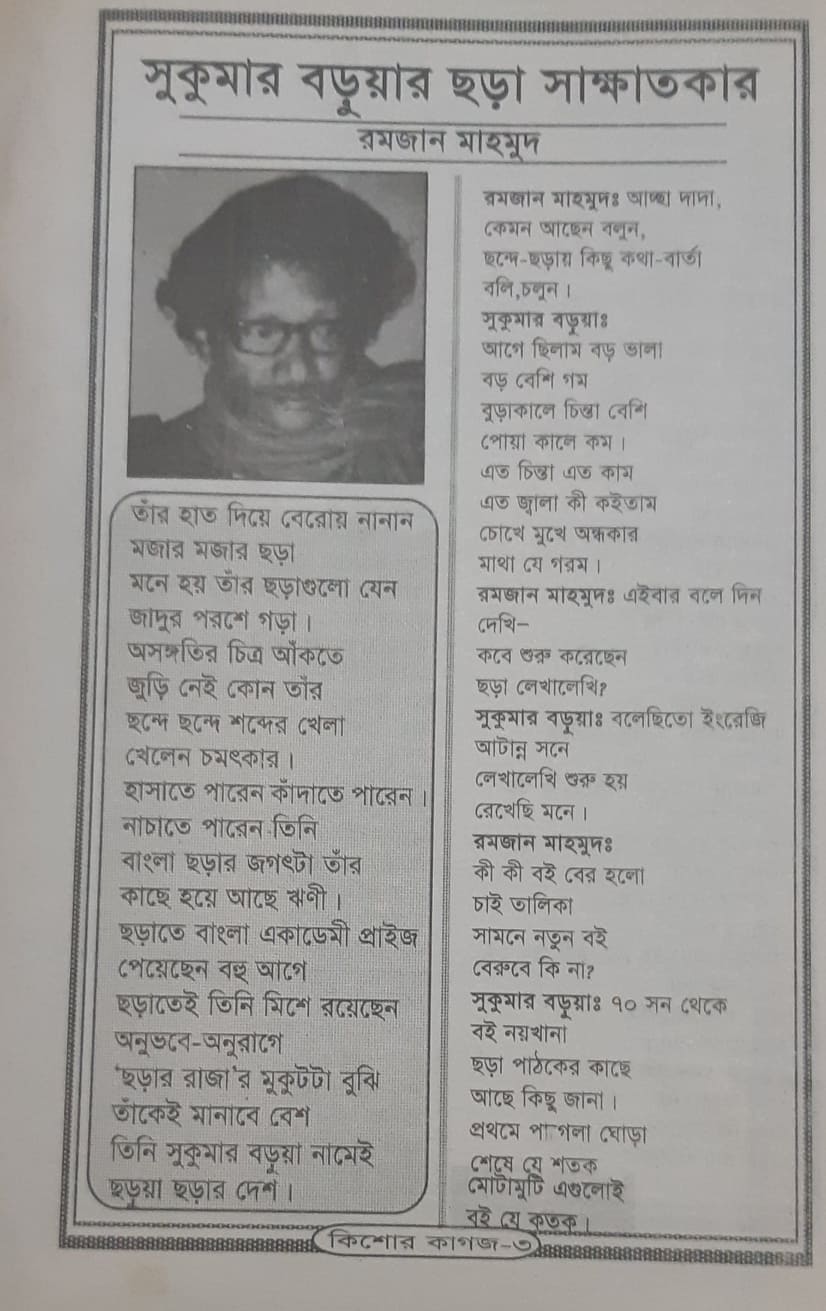 সুকুমার বড়ুয়ার ছড়া সাক্ষাতকার
রমজান মাহমুদ
তাঁর হাত দিয়ে বেরোয় নানান
মজার মজার ছড়া
মনে হয় তাঁর ছড়াগুলো যেন
জাদুর পরশে গড়া।
অসঙ্গতির চিত্র আঁকতে
জুড়ি নেই কোন তাঁর
ছন্দে ছন্দে শব্দের খেলা
খেলেন চমৎকার।
হাসাতে পারেন কাঁদাতে পারেন।
নাচাতে পারেন তিনি
বাংলা ছড়ার জগৎটা তাঁর
কাছে হয়ে আছে ঋণী।
ছড়াতে বাংলা একাডেমী প্রাইজ
পেয়েছেন বহু আগে
ছড়াতেই তিনি মিশে রয়েছেন
অনুভবে-অনুরাগে
'ছড়ার রাজা'র মুকুটটা বুঝি
তাঁকেই মানাবে বেশ
তিনি সুকুমার বড়ুয়া নামেই
ছড়ুয়া ছড়ার দেশ।
রমজান মাহমুদঃ আচ্ছা দাদা,
কেমন আছেন বলুন,
ছন্দে-ছড়ায় কিছু কথা-বার্তা
বলি,চলুন।
সুকুমার বড়ুয়াঃ
আগে ছিলাম বড় ভালা
বড় বেশি গম
বুড়াকালে চিন্তা বেশি
পোয়া কালে কম।
এত চিন্তা এত কাম
এত জ্বালা কী কইতাম
চোখে মুখে অন্ধকার
মাথা যে গরম।
রমজান মাহমুদঃ এইবার বলে দিন
দেখি–
কবে শুরু করেছেন
ছড়া লেখালেখি?
সুকুমার বড়ুয়াঃ বলেছিতো ইংরেজি
আটান্ন সনে
লেখালেখি শুরু হয়
রেখেছি মনে।
রমজান মাহমুদঃ
কী কী বই বের হলো
চাই তালিকা
সামনে নতুন বই
বেরুবে কি না?
সুকুমার বড়ুয়াঃ ৭০ সন থেকে
বই নয়খানা
ছড়া পাঠকের কাছে
আছে কিছু জানা।
প্রথমে পাগলা ঘোড়া
শেষে যে শতক
মোটামুটি এগুলোই
বই যে কতক।
কিশোর কাগজ-৩